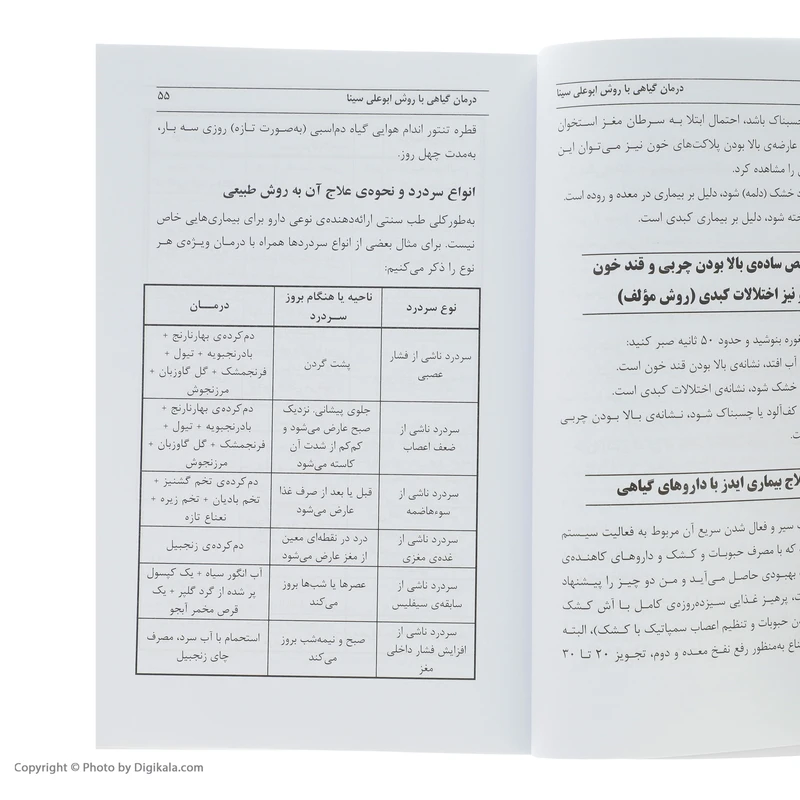 درمان گیاهی با روش ابوعلی سینا
حسبناک باشد، احتمال ابتلا به سرطان مغز استخوان
عارضه‌ی بالا بودن پلاکت‌های خون نیز می‌توان این
را مشاهده کرد.
خشک (دلمه) شود، دلیل بر بیماری در معده و روده است.
شود، دلیل بر بیماری کبدی است.
ساده‌ی بالا بودن چربی و قند خون
و نیز اختلالات کبدی (روش مؤلف)
غوره بنوشید و حدود ۵۰ ثانیه صبر کنید:
آب افتد، نشانه‌ی بالا بودن قند خون است.
خشک شود، نشانه‌ی اختلالات کبدی است.
کف‌آلود یا چسبناک شود، نشانه‌ی بالا بودن چربی
بیماری ایدز با داروهای گیاهی
سیر و فعال شدن سریع آن مربوط به فعالیت سیستم
که با مصرف حبوبات و کشک و داروهای کاهنده‌ی
بهبودی حاصل می‌آید و من دو چیز را پیشنهاد
پرهیز غذایی سیزده‌روزه‌ی کامل با آش کشک
حبوبات و تنظیم اعصاب سمپاتیک با کشک)، البته
به‌منظور رفع نفخ معده و دوم، تجویز ۲۰ تا ۳۰
درمان گیاهی با روش ابوعلی سینا ۵۵
قطره تنتور اندام هوایی گیاه دم‌اسبی (به‌صورت تازه) روزی سه بار،
به‌مدت چهل روز.
انواع سردرد و نحوه‌ی علاج آن به روش طبیعی
به‌طورکلی طب سنتی ارائه‌دهنده‌ی نوعی دارو برای بیماری‌هایی خاص
نیست. برای مثال بعضی از انواع سردردها همراه با درمان ویژه‌ی هر
نوع را ذکر می‌کنیم:
نوع سردرد
ناحیه یا هنگام بروز
سردرد
درمان
سردرد ناشی از فشار
عصبی
پشت گردن
دم‌کرده‌ی بهارنارنج +
بادرنجبویه + تیول +
فرنجمشک + گل گاوزبان +
مرزنجوش
سردرد ناشی از
ضعف اعصاب
جلوی پیشانی. نزدیک
صبح عارض می‌شود و
کم‌کم از شدت آن
کاسته می‌شود
دم‌کرده‌ی بهارنارنج +
بادرنجبویه + تیول +
فرنجمشک + گل گاوزبان +
مرزنجوش
سردرد ناشی از
سوءهاضمه
قبل یا بعد از صرف غذا
عارض می‌شود
دم‌کرده‌ی تخم گشنیز +
تخم بادیان + تخم زیره +
نعناع تازه
سردرد ناشی از
غده‌ی مغزی
درد در نقطه‌ای معین
از مغز عارض می‌شود
دم‌کرده‌ی زنجبیل
سردرد ناشی از
سابقه‌ی سیفلیس
عصرها یا شب‌ها بروز
می‌کند
آب انگور سیاه + یک کپسول
پر شده از گرد گلپر + یک
قرص مخمر آبجو
سردرد ناشی از
افزایش فشار داخلی
مغز
صبح و نیمه‌شب بروز
می‌کند
استحمام با آب سرد، مصرف
چای زنجبیل
Copyright © Photo by Digikala.com